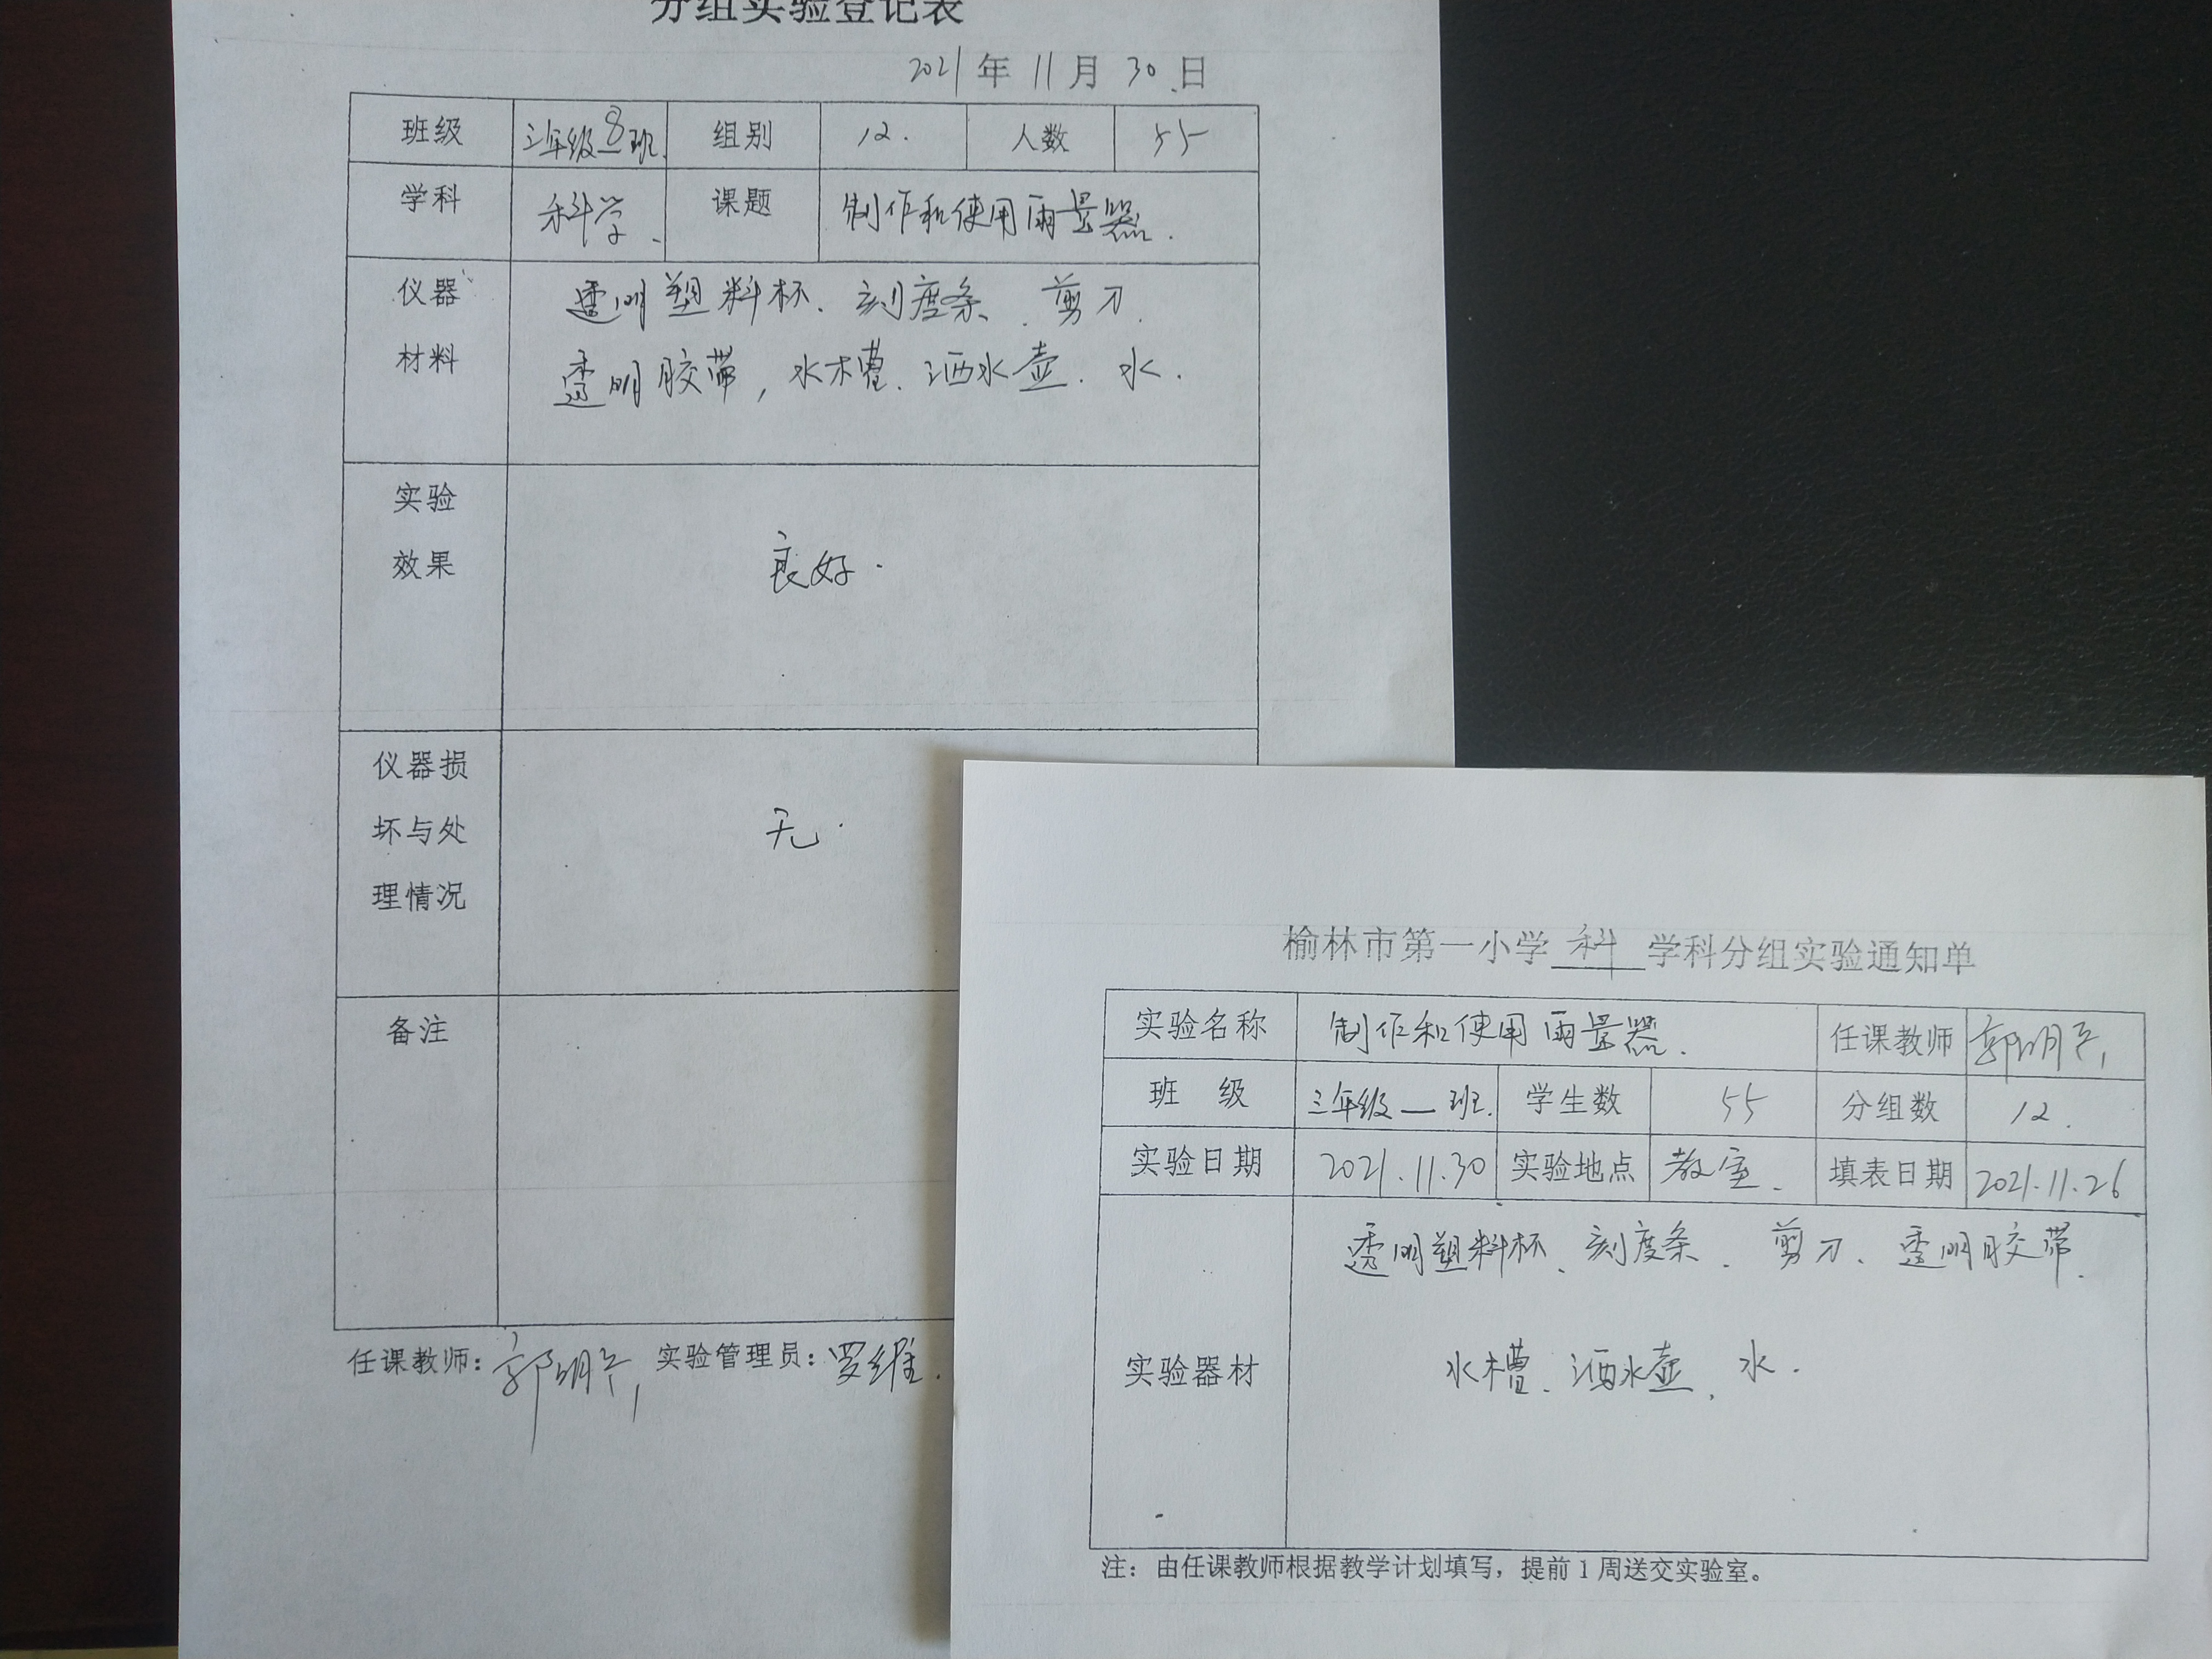 分组实验登记表
2021年11月30日
班级 三年级8班. 组别 12. 人数 55
学科 科学. 课题 制作和使用雨量器.
仪器 透明塑料杯、刻度条、剪刀、
材料 透明胶带, 水槽、洒水壶. 水.
实验
效果 良好.
仪器损
坏与处 无.
理情况
备注
任课教师: 郭明 实验管理员: 罗维.
榆林市第一小学 科 学科分组实验通知单
实验名称 制作和使用雨量器. 任课教师 郭明
班 级 三年级__班. 学生数 55 分组数 12.
实验日期 2021.11.30 实验地点 教室、 填表日期 2021.11.26
透明塑料杯、刻度条、剪刀、透明胶带、
实验器材 水槽、洒水壶、水.
注: 由任课教师根据教学计划填写, 提前1周送交实验室。